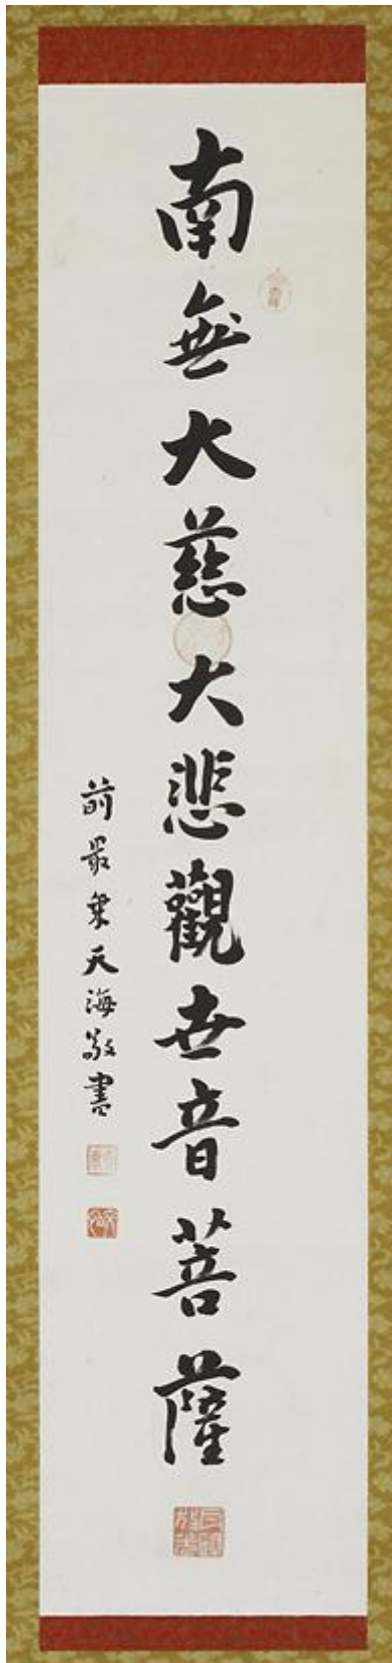 南無大慈大悲觀世音菩薩
前最乗天海敬書